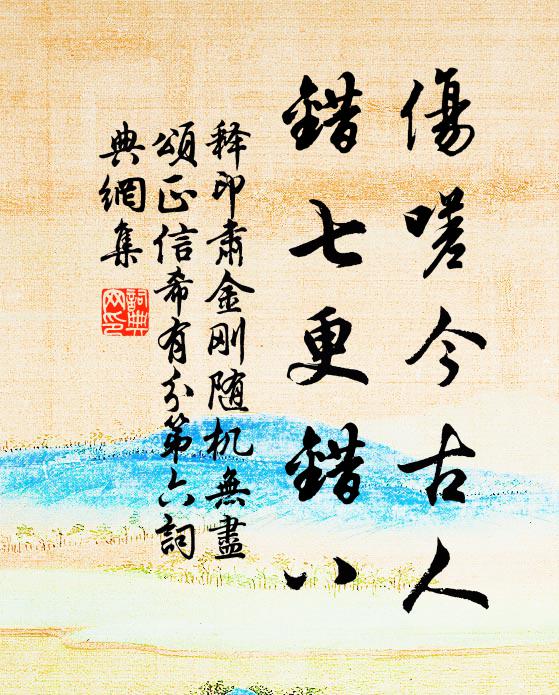 傷嗟今古人
錯七更錯八
释印肃金刚随机無盡
頌正信希有分第六詞
典網集
詞典网印